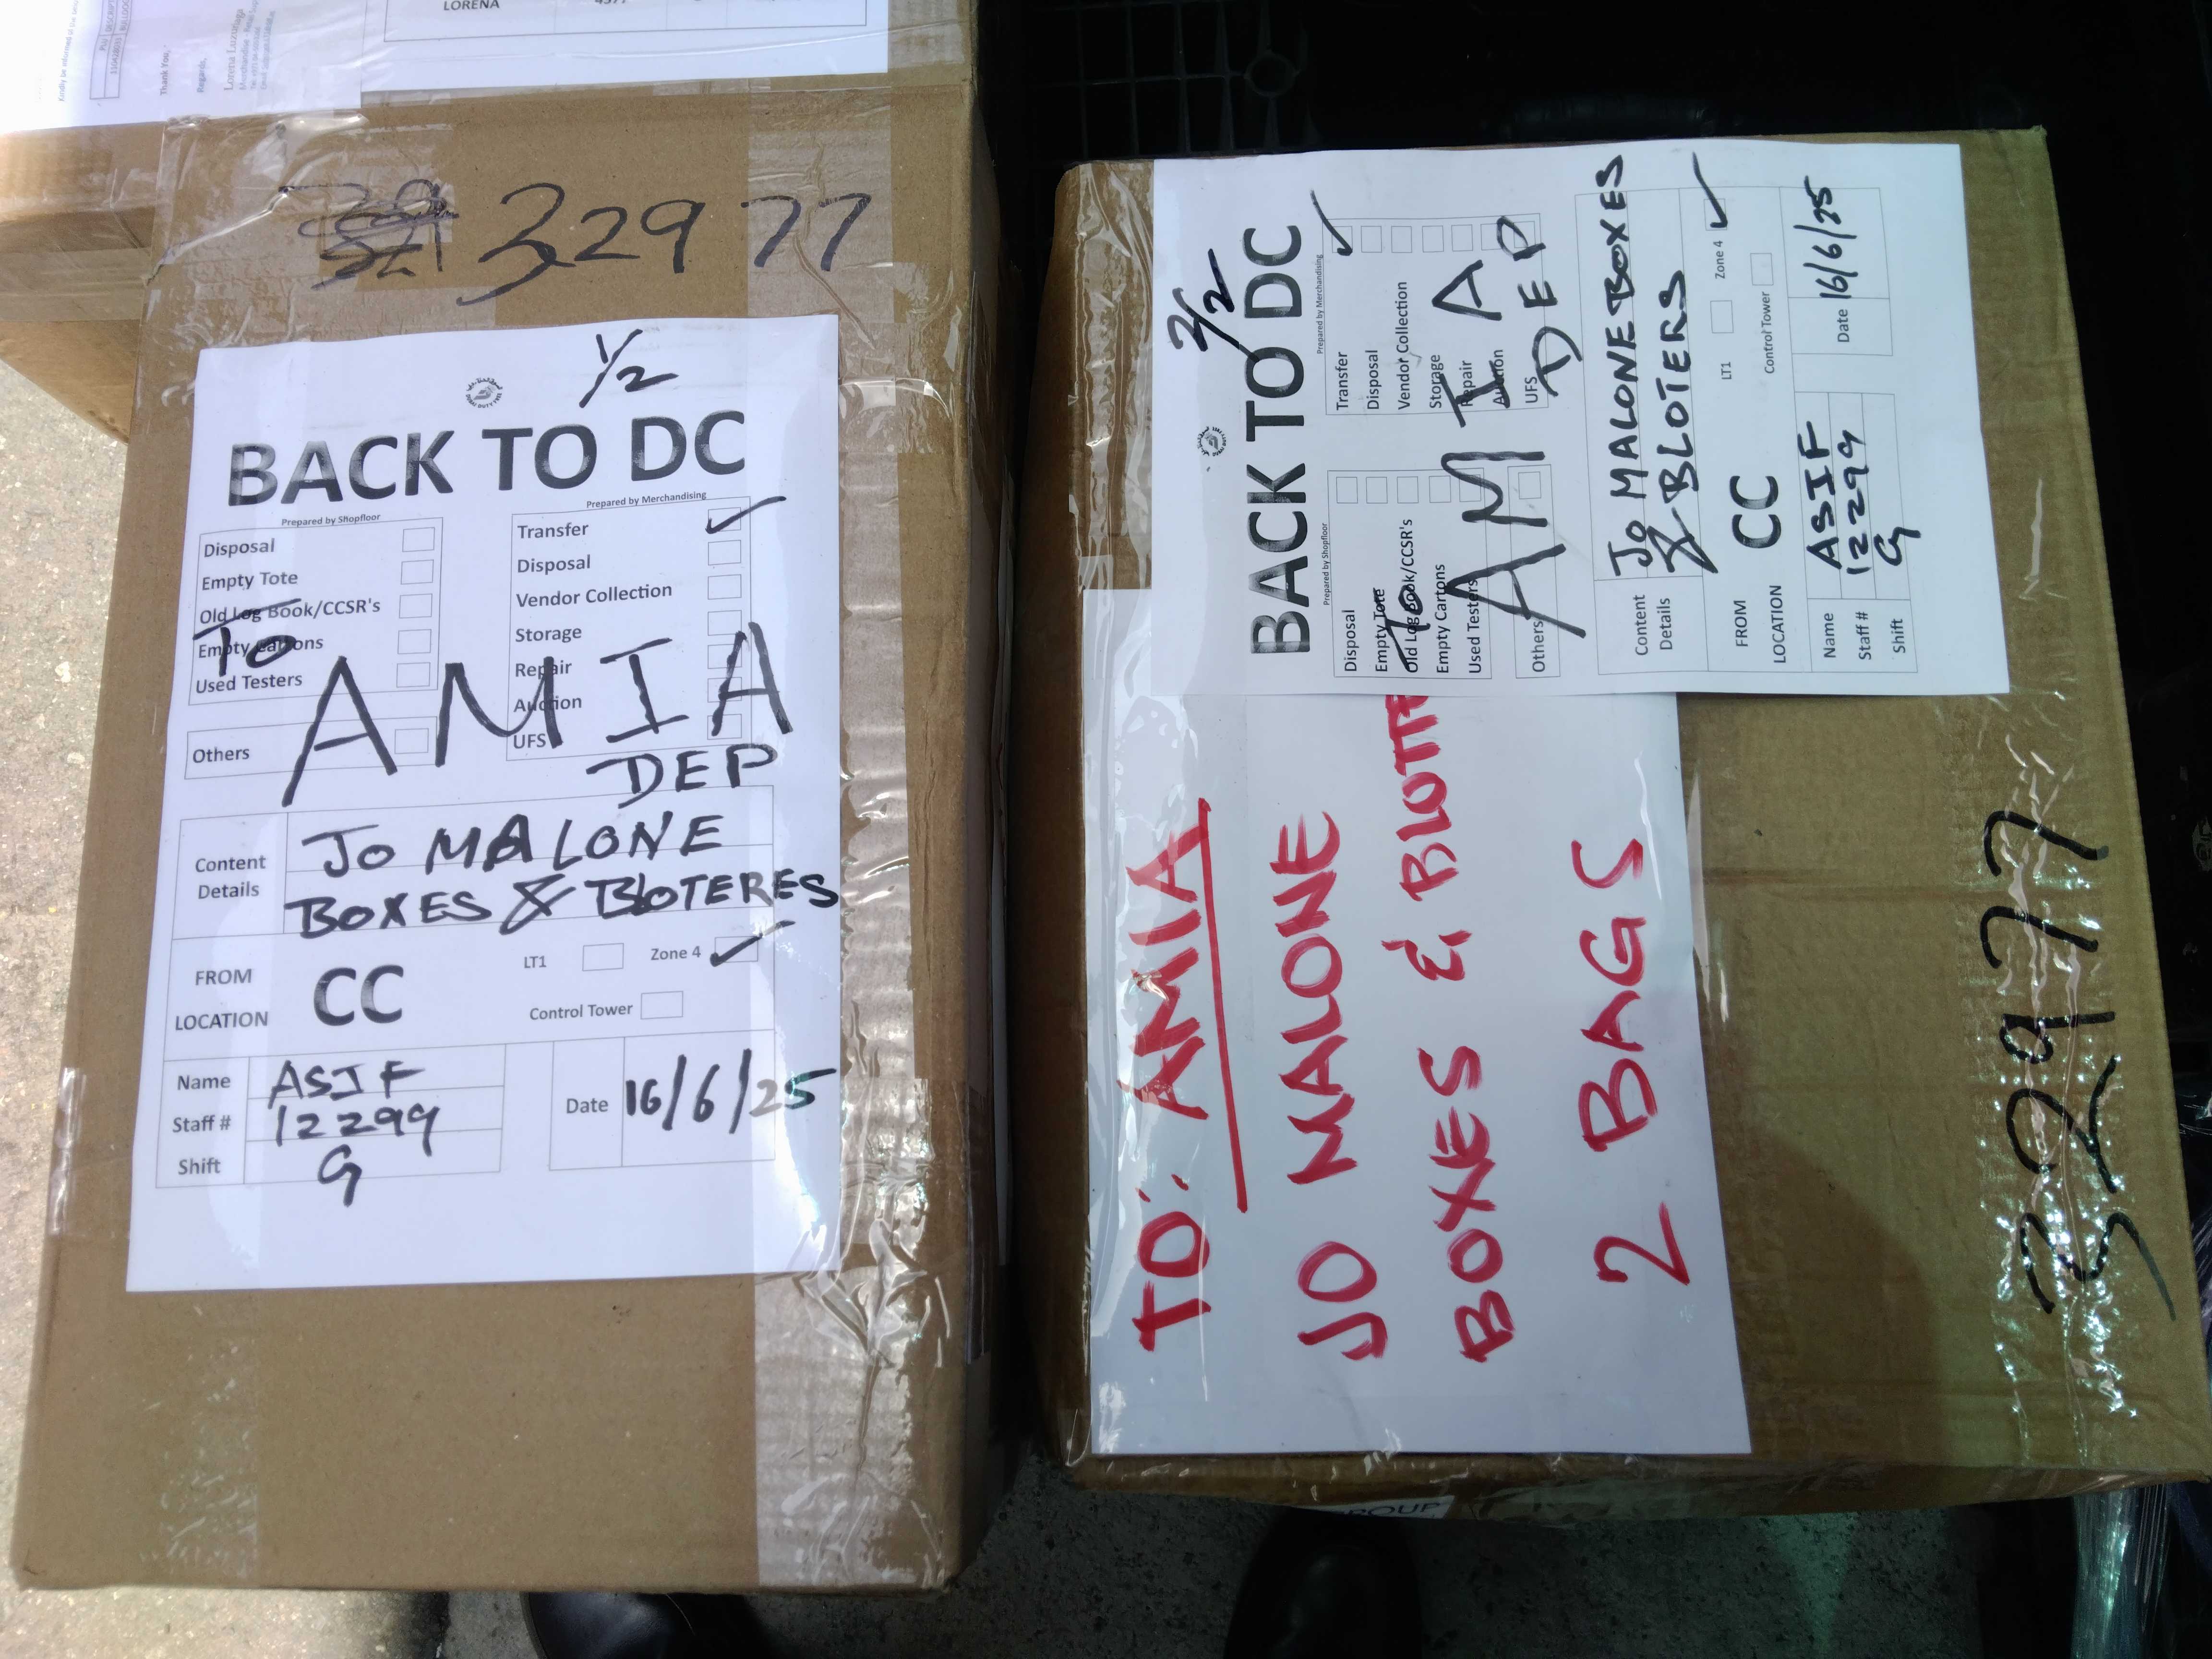 LORENA
Thank You,
Regards,
32977
1/2
BACK TO DC
Prepared by Shopfloor
Disposal
Empty Tote
Old Log Book/CCSR's
Empty Cartons
Used Testers
Others
Prepared by Merchandising
Transfer ✓
Disposal
Vendor Collection
Storage
Repair
Auction
UFS
To
AMIA
DEP
Content Details
JO MALONE
BOXES & BLOTERES
FROM LOCATION
CC
LT1
Zone 4 ✓
Control Tower
Name ASIF
Staff # 12299
Shift G
Date 16/6/25
2/2
BACK TO DC
Prepared by Shopfloor
Disposal
Empty Tote
Old Log Book/CCSR's
Empty Cartons
Used Testers
Others
Prepared by Merchandising
Transfer ✓
Disposal
Vendor Collection
Storage
Repair
Auction
UFS
To
AMIA
DEP
Content Details
JO MALONE BOXES
& BLOTERS
FROM LOCATION
CC
LT1
Zone 4 ✓
Control Tower
Name ASIF
Staff # 12299
Shift G
Date 16/6/25
TO: AMIA
JO MALONE
BOXES &
2 BAGS
32977